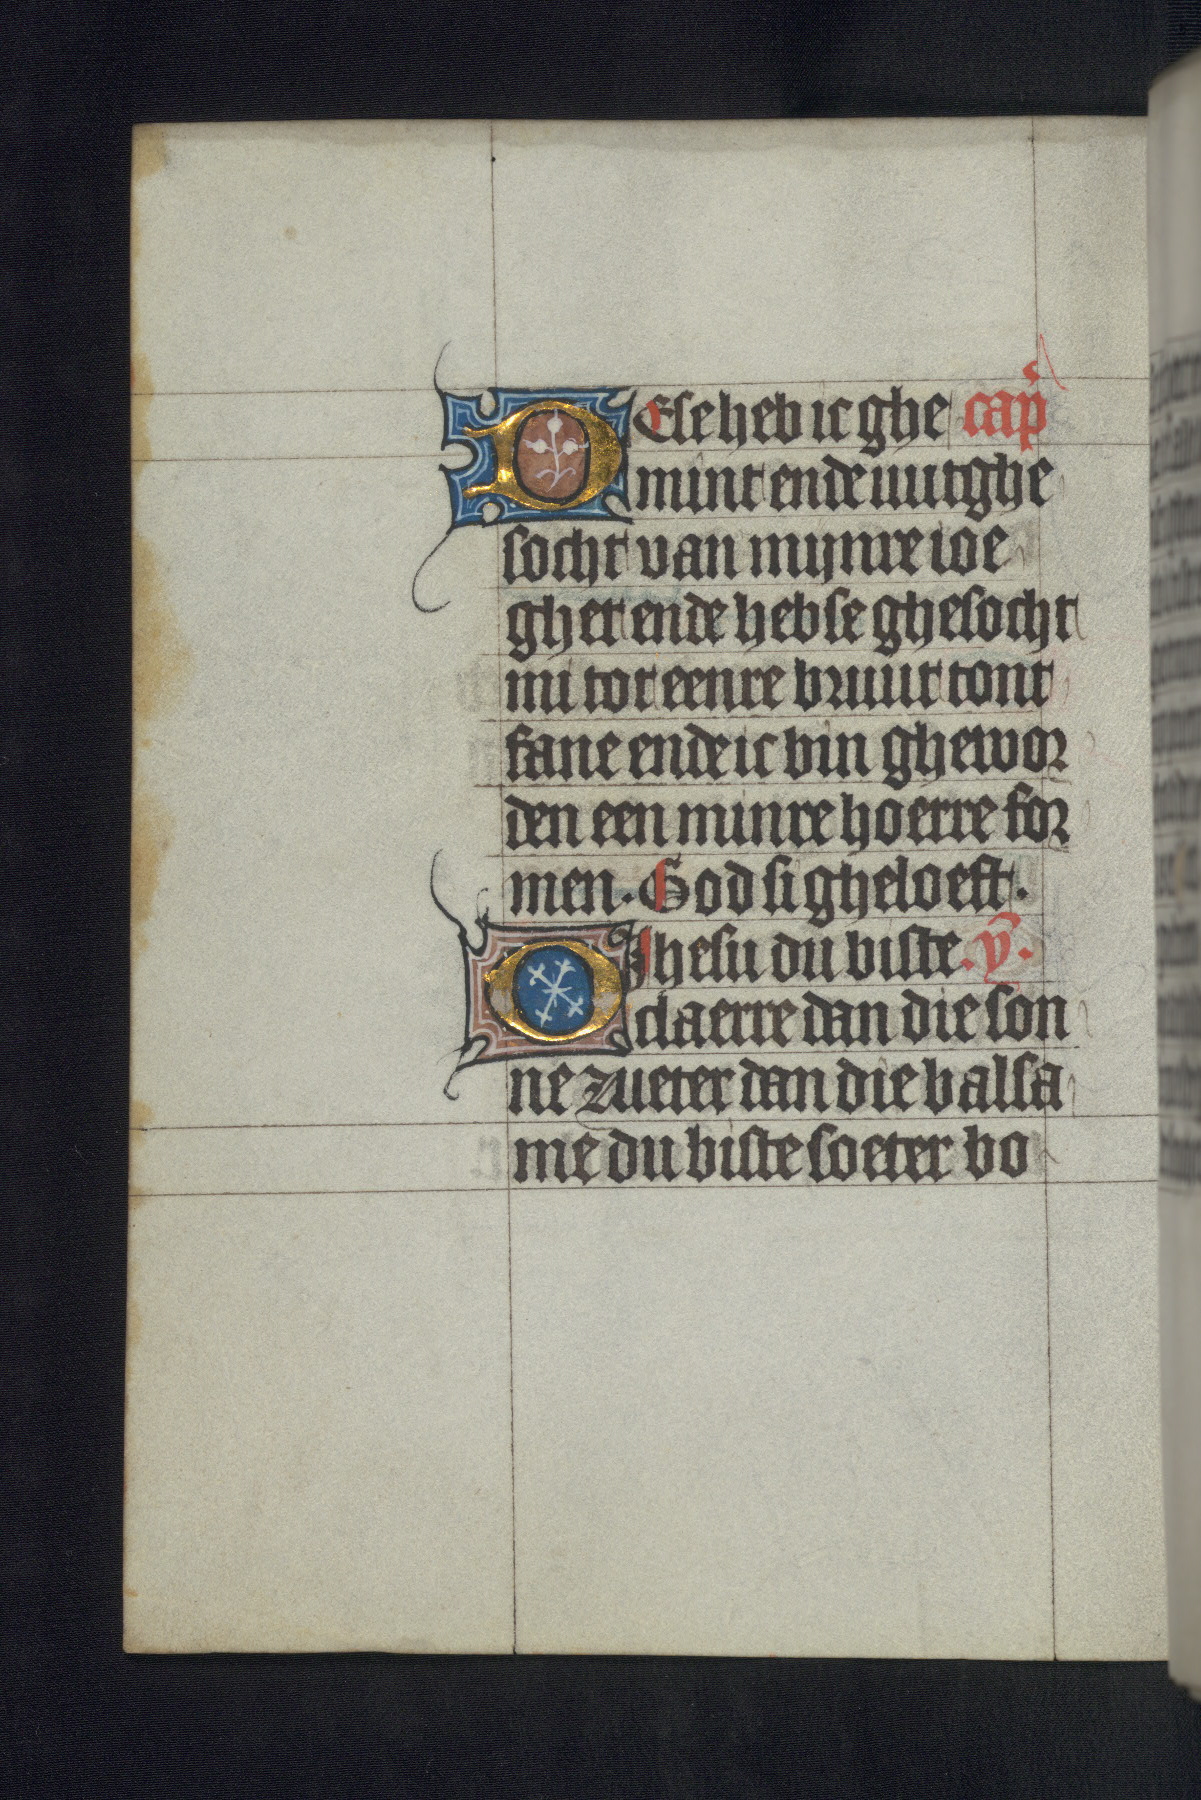 DEse heb ic ghe cap̄
mint ende uutghe
socht van mijnre ioe
ghet ende heb se ghesocht
mi tot eenre bruut tont
fane ende ic bin ghewor
den een minre hoerre for
men. God si gheloeft.
O Ihesu du biste .ỹ.
claerre dan die son
ne zueter dan die balsa
me du biste soeter bo